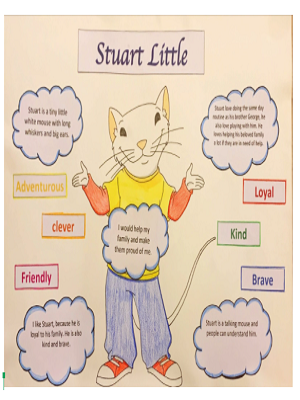 Stuart Little
Stuart is a tiny little
white mouse with long
whiskers and big ears.
Stuart love doing the same day
routine as his brother George, he
also love playing with him. He
loves helping his beloved family
a lot if they are in need of help.
Adventurous
Loyal
clever
I would help my
family and make
them proud of me.
Kind
Friendly
Brave
I like Stuart, because he is
loyal to his family. He is also
kind and brave.
Stuart is a talking mouse and
people can understand him.